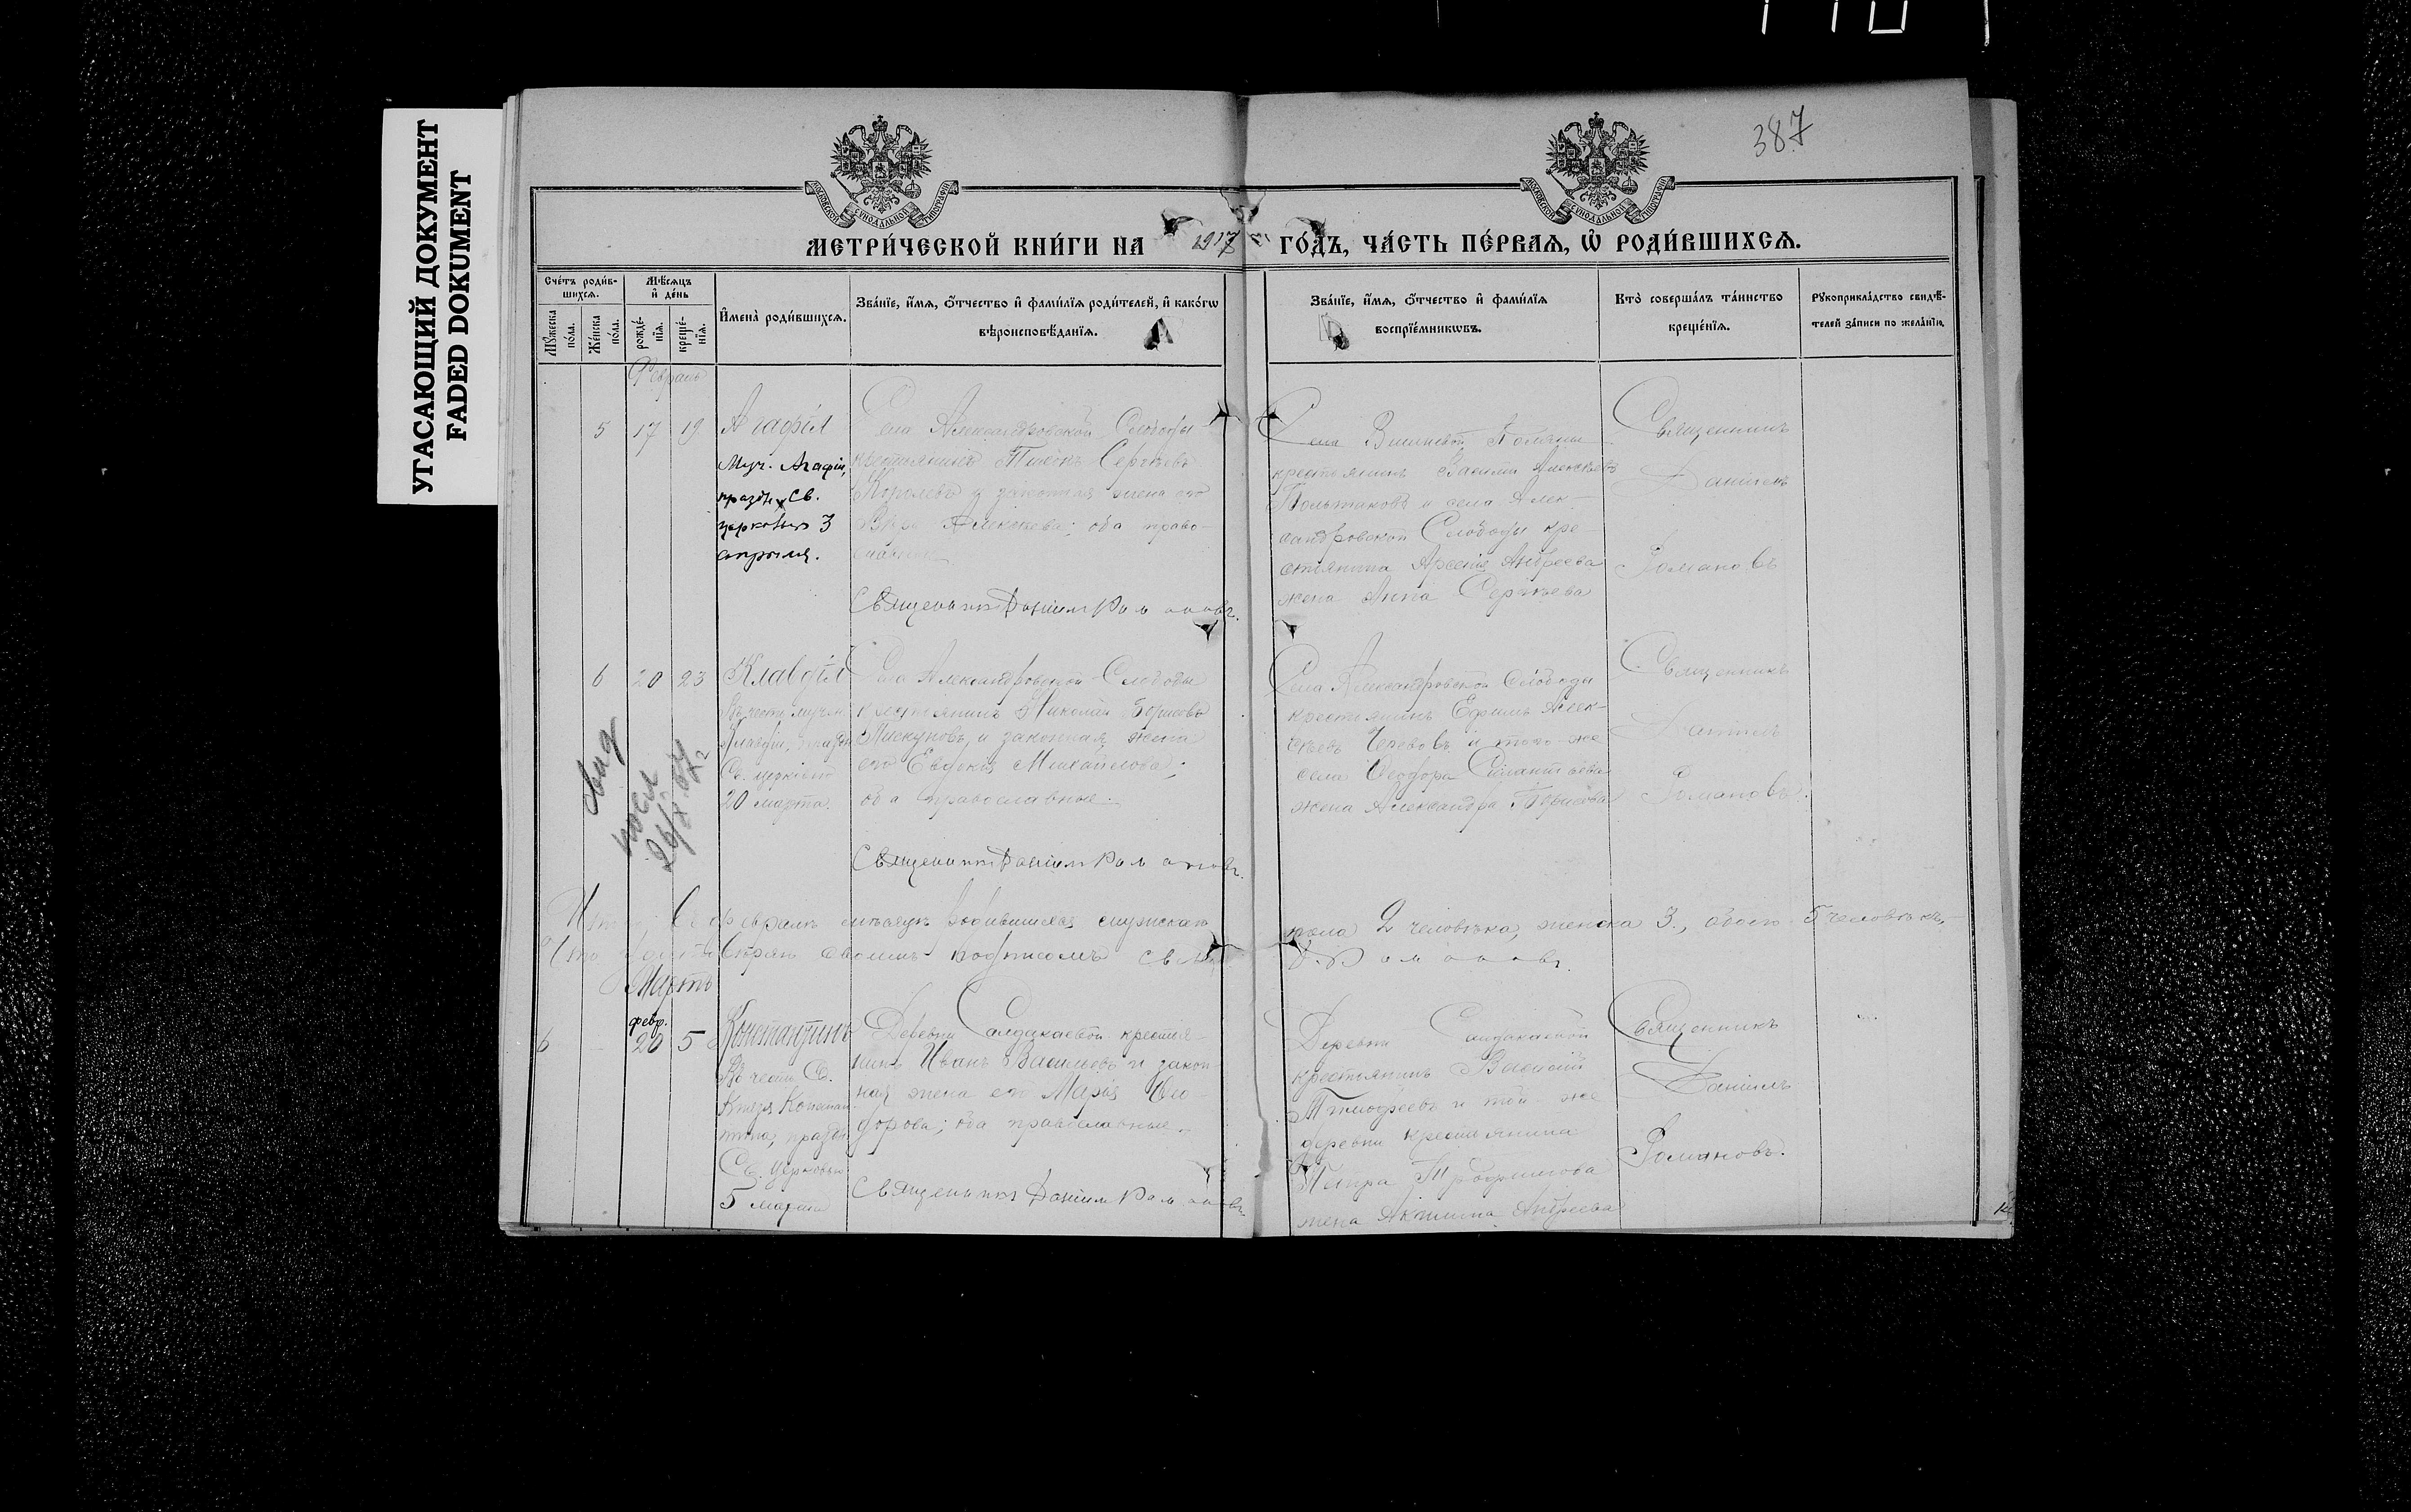 УГАСАЮЩИЙ ДОКУМЕНТ
FADED DOKUMENT
387
МОСКОВСКОЙ СѴНОДАЛЬНОЙ ТИПОГРАФІИ
МОСКОВСКОЙ СѴНОДАЛЬНОЙ ТИПОГРАФІИ
МЕТРИ́ЧЕСКОЙ КНИ́ГИ НА 1917 ГО́ДЪ, ЧА́СТЬ ПЕ́РВАѦ, Ѿ РОДИ́ВШИХСѦ.
Сче́тъ роди́в-
шихсѧ.
Мꙋ́жеска по́ла.
Же́нска по́ла.
Мѣ́сѧцъ
и҆ де́нь
рожде́-
нїѧ.
креще́-
нїѧ.
И҆мена̀ роди́вшихсѧ.
Зва́нїе, и҆́мѧ, ѻ҆́тчество и҆ фами́лїѧ роди́телей, и҆ како́гѡ
вѣроисповѣ́данїѧ.
Зва́нїе, и҆́мѧ, ѻ҆́тчество и҆ фами́лїѧ
воспрїе́мникѡвъ.
Кто̀ соверша́лъ та́инство
креще́нїѧ.
Рꙋкоприкла́дство свидѣ́-
телей за́писи по жела́нїю.
Февраль
5 17 19 Агафія
Муч. Агафіи,
праздн. Св.
церковью 3
апрѣля.
Села Александровской Слободы
крестьянинъ Тихонъ Сергѣевъ
Королевъ и законная жена его
Вѣра Алексѣева; оба право-
славные
Священникъ Даніилъ Романовъ.
Села Вишневой Поляны
крестьянинъ Василій Алексѣевъ
и села Алек-
сандровской Слободы кре-
стьянина Арсенія Андреева
жена Анна Сергѣева
Священникъ
Даніилъ
Романовъ
6 20 23 Клавдія
Въ честь мучен.
Клавдіи, праздн.
Св. церковью
20 марта.
Села Александровской Слободы
крестьянинъ Николай Борисовъ
Пискуновъ, и законная жена
его Евдокія Михайлова;
оба православные.
Священникъ Даніилъ Романовъ.
Села Александровской Слободы
крестьянинъ Ефимъ Алек-
сѣевъ и того-же
села Ѳеодора Силантьева
жена Александра Борисова
Священникъ
Даніилъ
Романовъ.
свид
26/X 67
февралѣ мѣсяцѣ родившихся мужскаго
пола 2 человѣка, женска 3, обоего 5 человѣкъ,
своимъ подписомъ
Д. Романовъ.
Мартъ
6 – февр. 20 5 Константинъ
Въ честь Св.
Князя Констан-
тина, праздн.
Св. церковью
5 марта
Деревни Салдакаевой крестья-
нинъ Иванъ Васильевъ и закон-
ная жена его Марія Ѳео-
дорова; оба православные.
Священникъ Даніилъ Романовъ.
Деревни Салдакаевой
крестьянинъ Василій
Тимофеевъ и той-же
деревни крестьянина
Петра Трофимова
жена Акилина Андреева
Священникъ
Даніилъ
Романовъ.